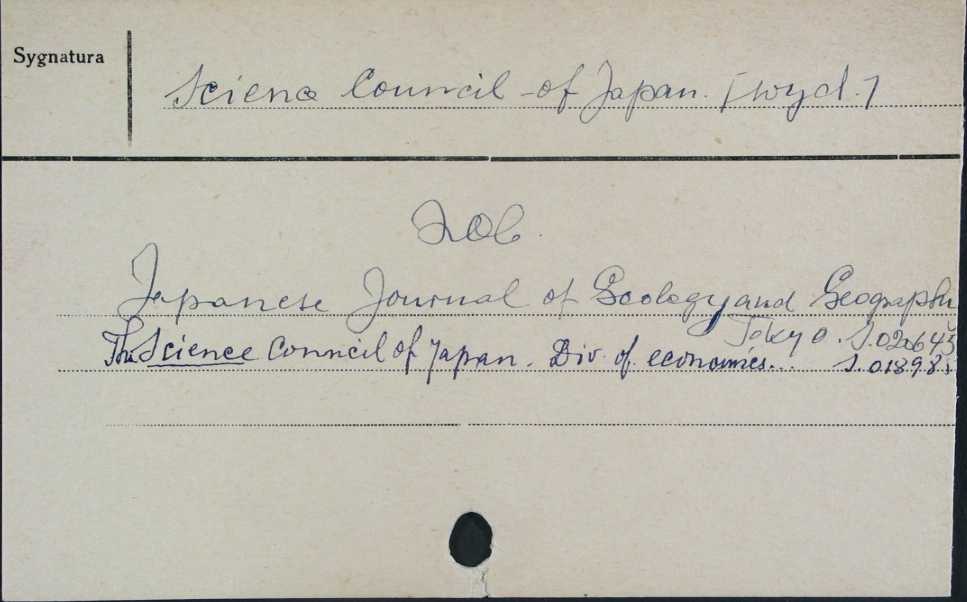 Sygnatura
Science Council of Japan. [wyd.]
Zob.
Japanese Journal of Geology and Geography
Tokyo. S.02064
The Science Council of Japan. Div. of economics... S.01898